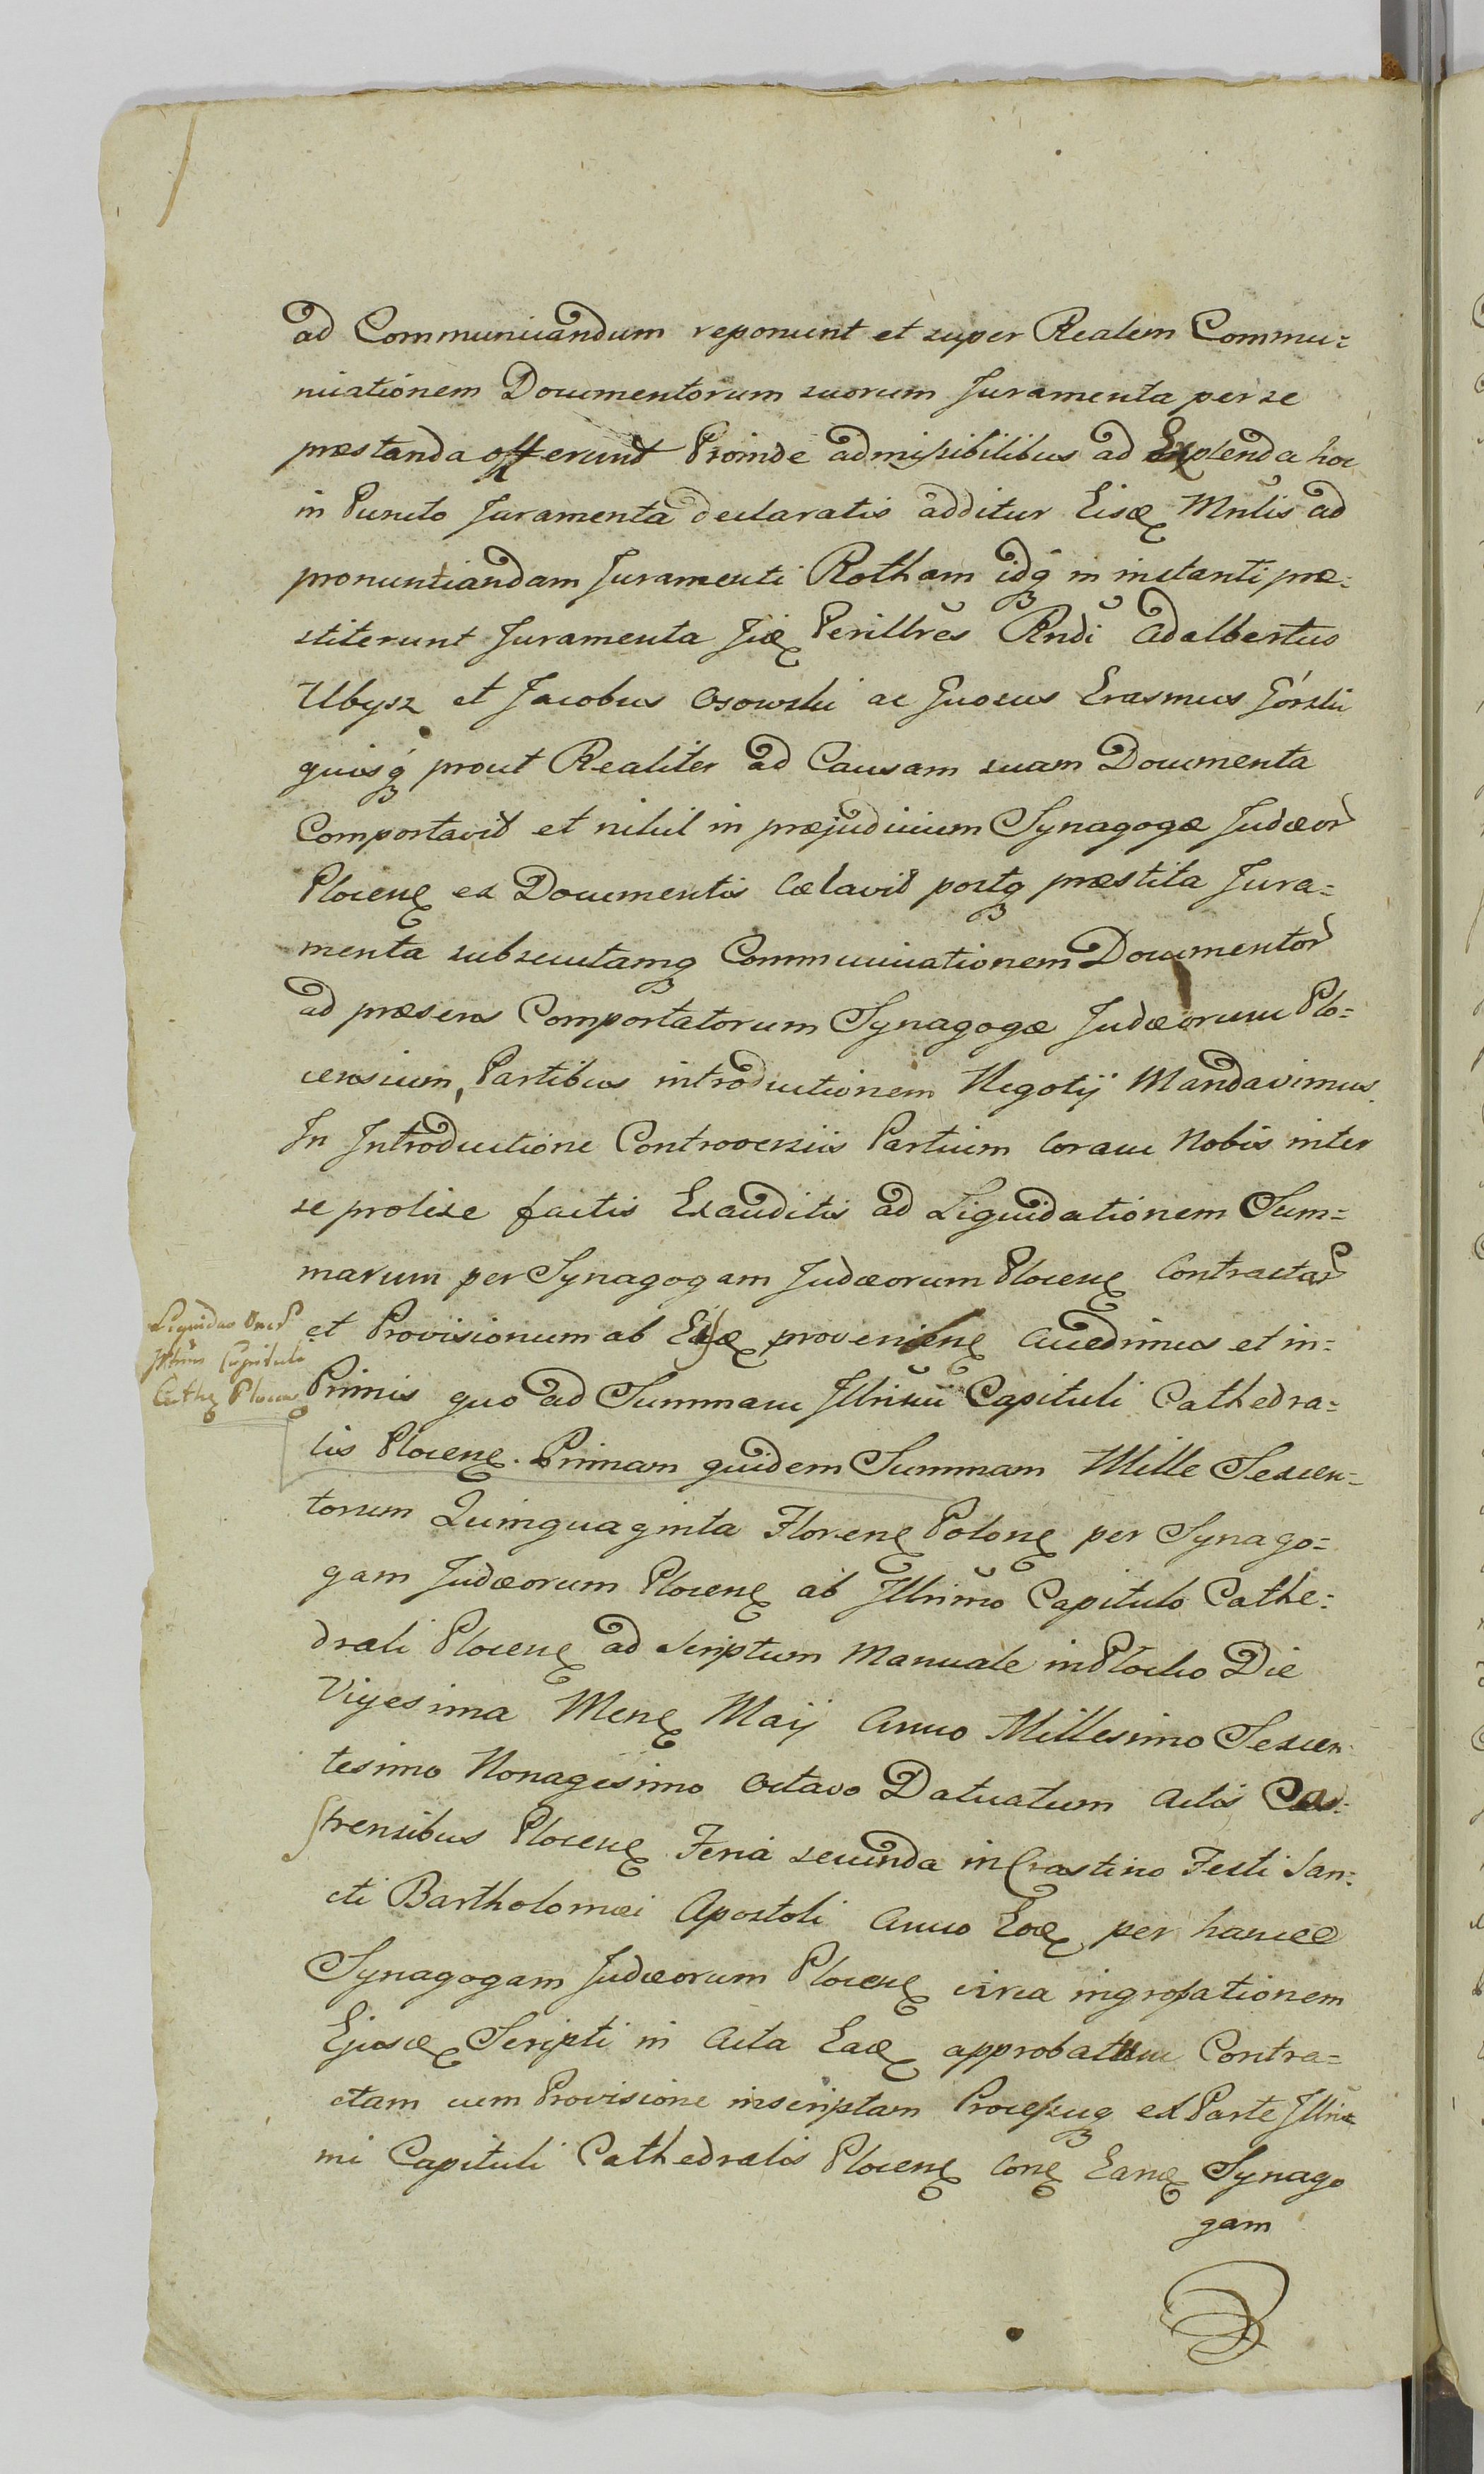 ad Communicandum reponunt et super Realem Commu=
nicationem Documentorum suorum Juramenta per se
præstanda offerunt Proinde admissibilibus ad Explenda hoc
in Puncto Juramenta declaratis additur Eisd Mnlis ad
pronuntiandam Juramenti Rotham idq in instanti præ=
stiterunt Juramenta Jid Perillres Rndi Adalbertus
Ubysz et Jacobus Osowski ac Gnosus Erasmus Górski
quisq prout Realiter ad Causam suam Documenta
Comportavit et nihil in præjudicium Synagogæ Judæor
Plocen ex Documentis Cælavit postq præstita Jura=
menta subsecutamq Communicationem Documentor
ad præsens Comportatorum Synagogæ Judæorum Plo=
censium, Partibus introductionem Negotij Mandavimus.
In Introductione Controversiis Partium Coram Nobis inter
se prolixe factis Exauditis ad Liquidationem Sum=
marum per Synagogam Judæorum Plocen Contractar
et Provisionum ab Eisd provenien Accedimus et in=
Primis quo ad Summam Illrimi Capituli Cathedra=
lis Plocen. Primam quidem Summam Mille Sexcen=
torum Quinquaginta Floren Polon per Synago=
gam Judæorum Plocen ab Illrimo Capitulo Cathe=
drali Plocen ad Scriptum Manuale in Plocko Die
Vigesima Men Maij Anno Millesimo Sexcen
tesimo Nonagesimo Octavo Datuatum Actis Cas=
trensibus Plocen Feria secunda in Crastino Festi San=
cti Bartholomæi Apostoli Anno Eod per hancce
Synagogam Judæorum Plocen circa ingrossationem
Ejusd Scripti in Acta Ead approbatum Contra=
ctam cum Provisione inscriptam Processuq ex Parte Illri
mi Capituli Cathedralis Plocen Con Eand Synago
gam
Liquidao
Capituli
Cathe Plocens